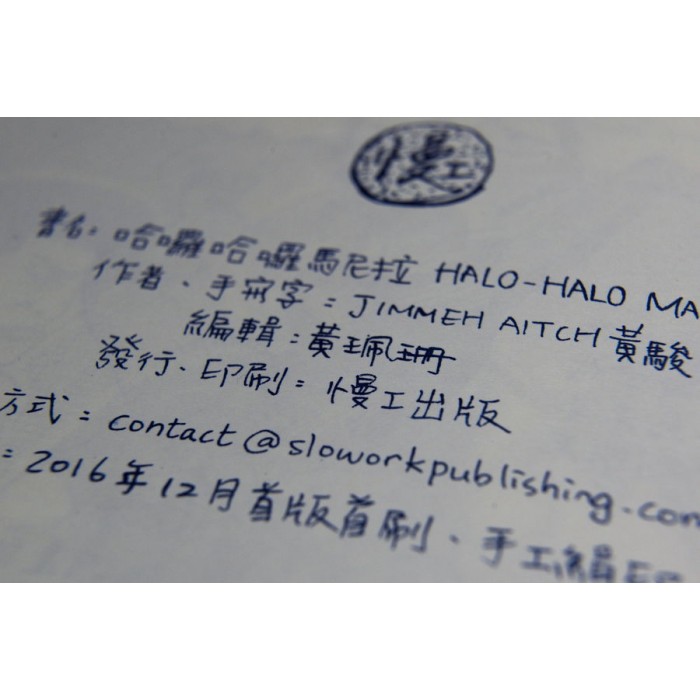 慢工
書名：哈囉哈囉馬尼拉 HALO-HALO MA
作者、手寫字：JIMMEH AITCH 黃駿
編輯：黃珮珊
發行、印刷：慢工出版
方式：contact@sloworkpublishing.com
：2016年12月首版首刷、手工絹印